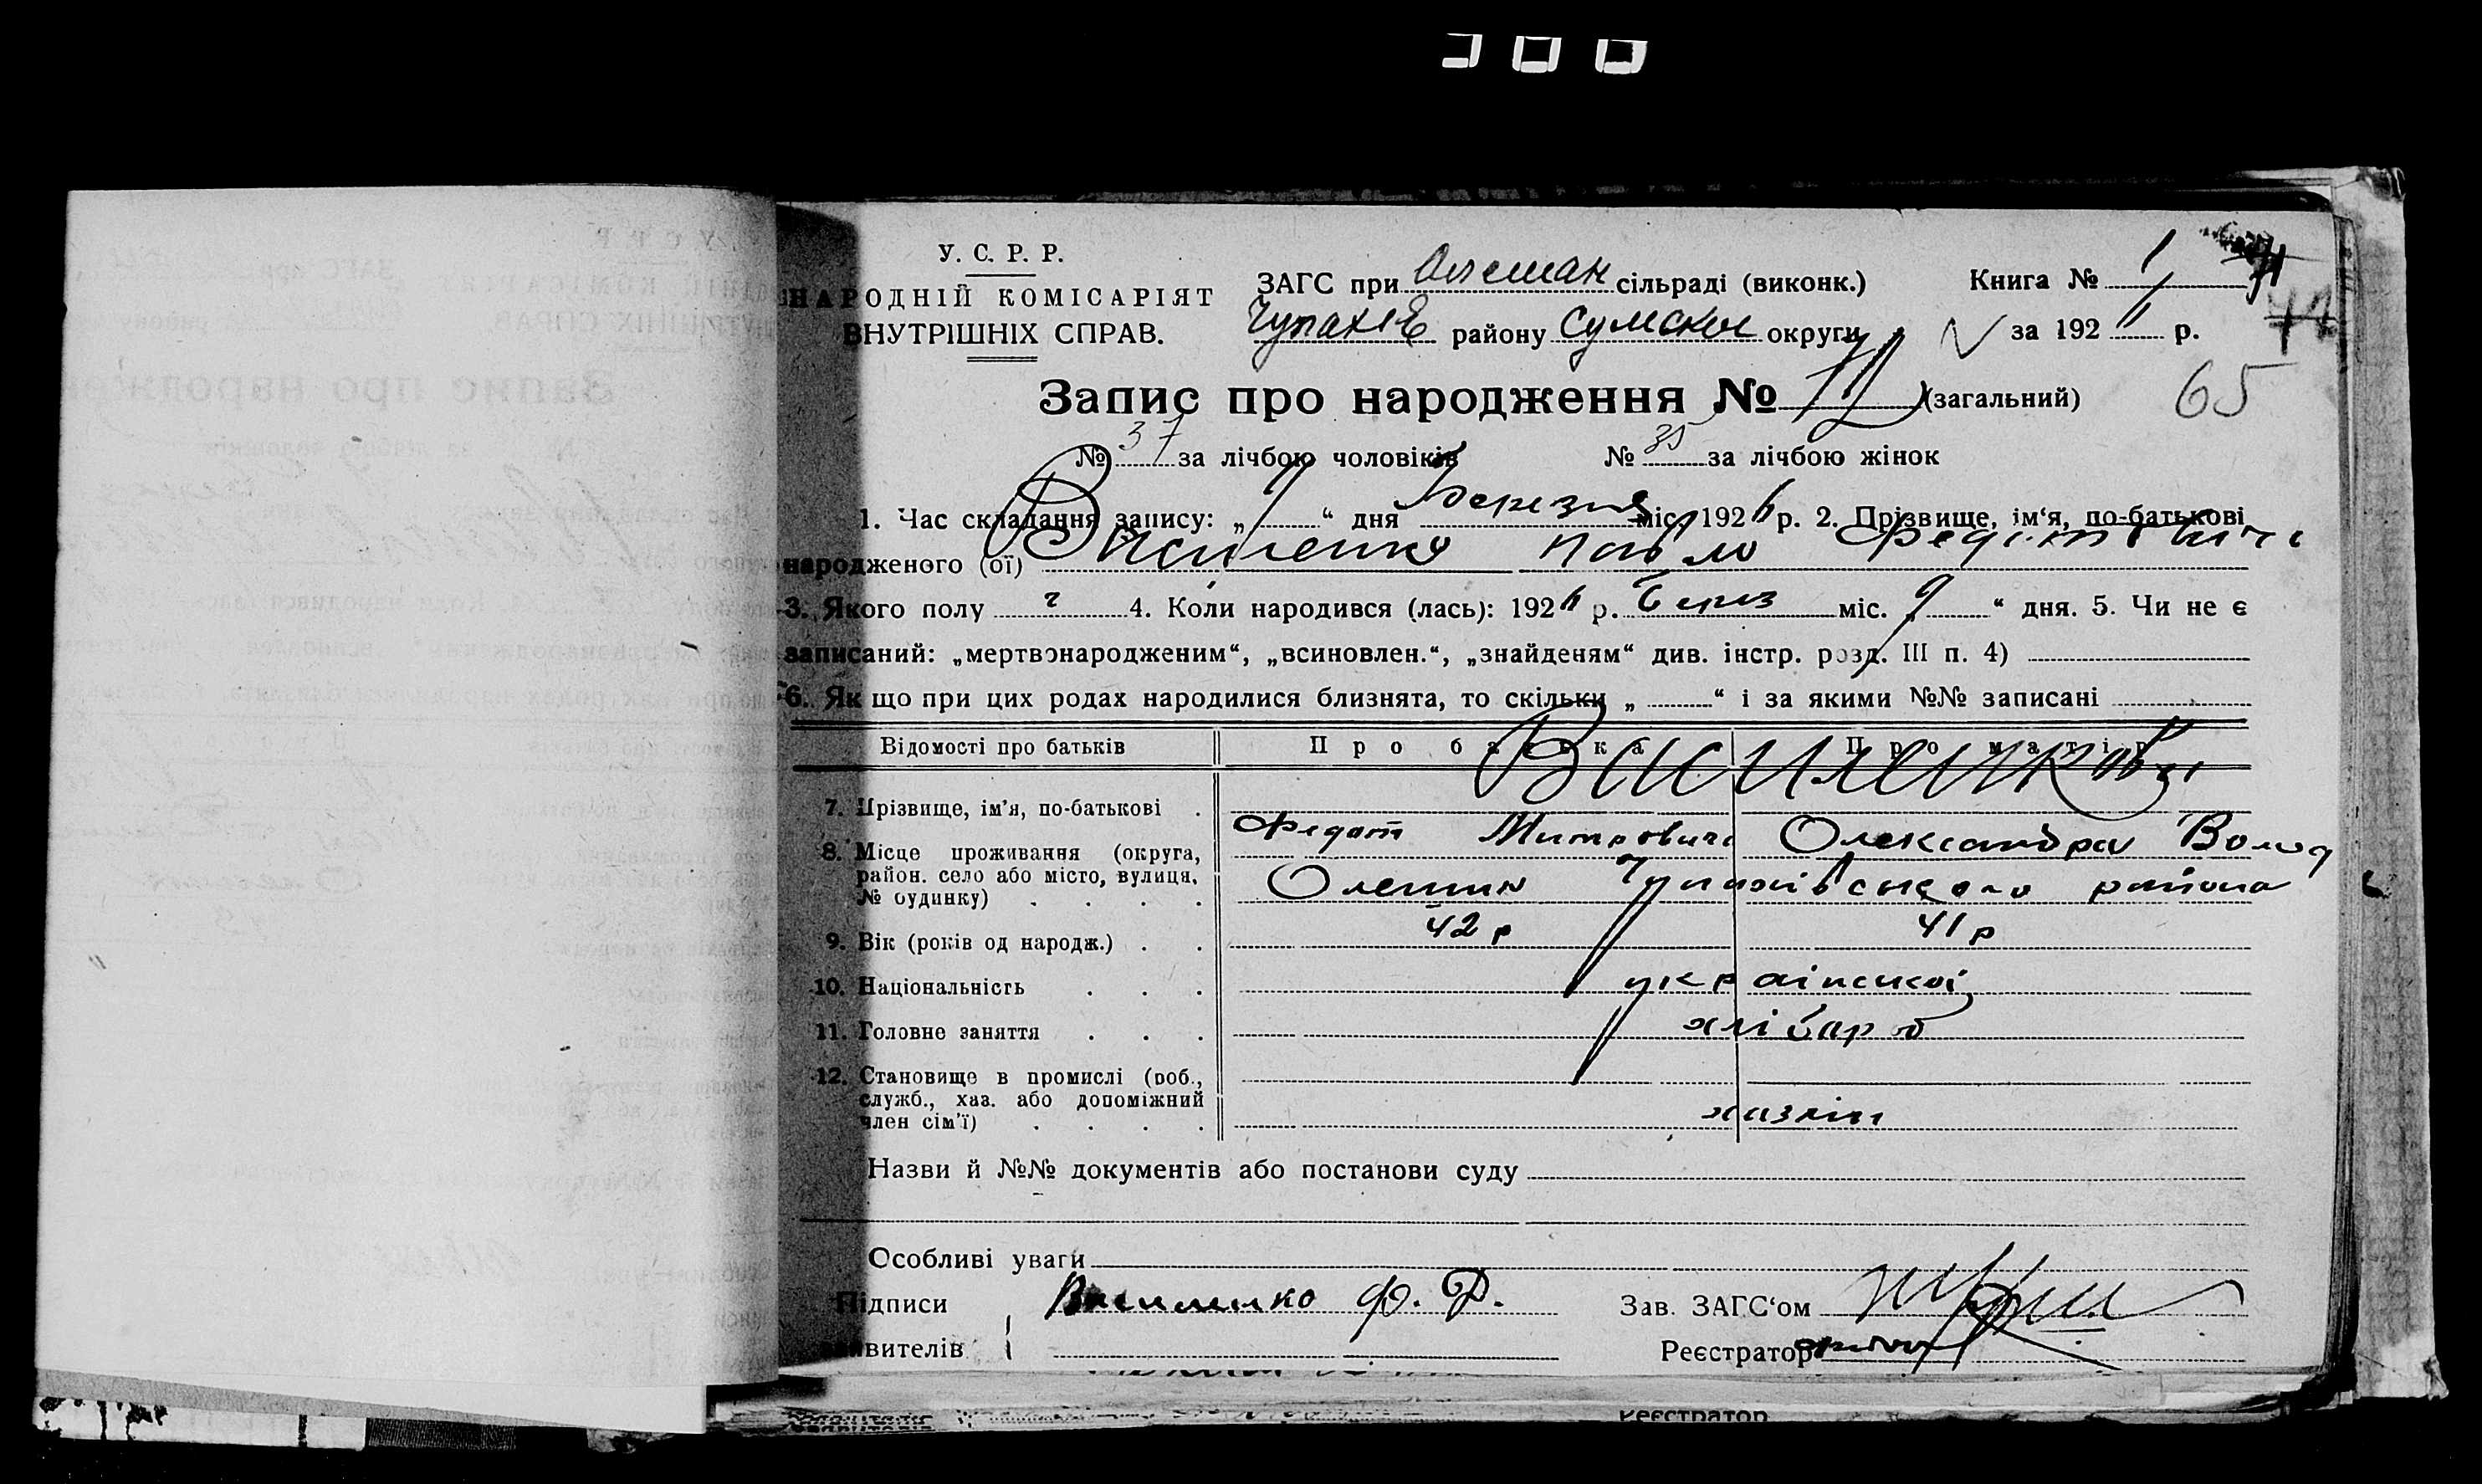 У. С. Р. Р.
НАРОДНІЙ КОМІСАРІЯТ
ВНУТРІШНІХ СПРАВ.
ЗАГС при Олешан сільраді (виконк.)
Чупахів району Сумської округи
Книга № 1
за 192 р.
65
Запис про народження № (загальний)
№ 37 за лічбою чоловіків № 35 за лічбою жінок
1. Час складання запису: „ “ дня Березня міс. 1926 р. 2. Прізвище, ім‘я, по-батькові
народженого (ої) Василенко Павло Федотович
3. Якого полу ч 4. Коли народився (лась): 1926 р. берез міс. „ “ дня. 5. Чи не є
записаний: „мертвонародженим“, „всиновлен.“, „знайденям“ див. інстр. розд. III п. 4)
6. Як що при цих родах народилися близнята, то скільки „ “ і за якими №№ записані
Відомості про батьків Про батька Про матір
7. Прізвище, ім’я, по-батькові Василенкови
Федот Митрович Олександра Волод
8. Місце проживання (округа, район. село або місто, вулиця, № будинку) Олешин Чупахівського района
9. Вік (років од народж.) 42 р 41 р
10. Національність української
11. Головне заняття хлібароб
12. Становище в промислі (роб., служб., хаз. або допоміжний член сім’ї) хазяін
Назви й №№ документів або постанови суду
Особливі уваги
Підписи Василенко Ф. Д. Зав. ЗАГС‘ом
заявителів Реєстратор
Реєстратор